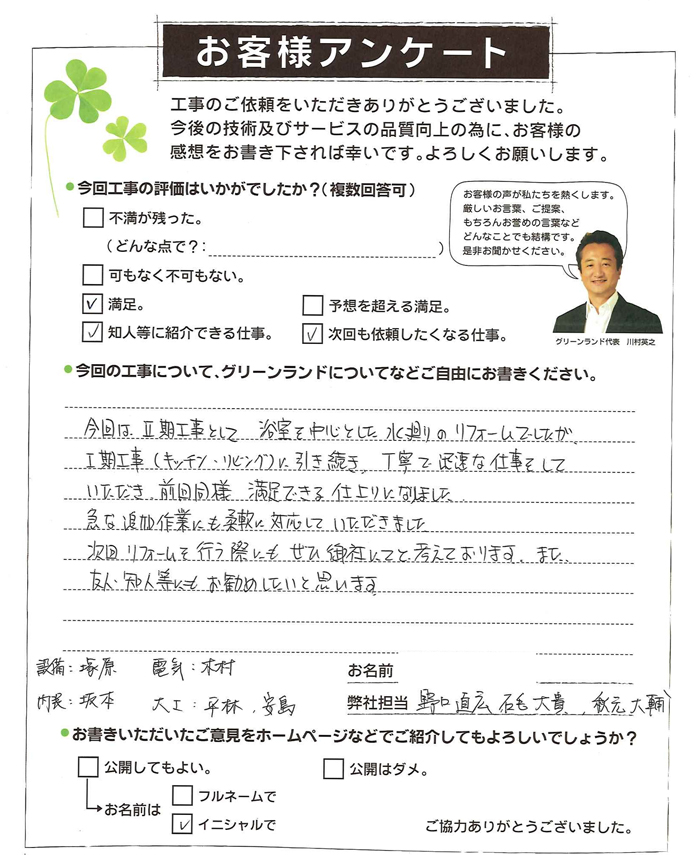 お客様アンケート
工事のご依頼をいただきありがとうございました。
今後の技術及びサービスの品質向上の為に、お客様の
感想をお書き下されば幸いです。よろしくお願いします。
今回工事の評価はいかがでしたか?(複数回答可)
不満が残った。
(どんな点で?: )
可もなく不可もない。
満足。 予想を超える満足。
知人等に紹介できる仕事。 次回も依頼したくなる仕事。
お客様の声が私たちを熱くします。
厳しいお言葉、ご提案、
もちろんお誉めの言葉など
どんなことでも結構です。
是非お聞かせください。
グリーンランド代表 川村英之
今回の工事について、グリーンランドについてなどご自由にお書きください。
今回は Ⅱ期工事として 浴室を中心とした水廻りのリフォームでしたが、
Ⅰ期工事(キッチン・リビング)に引き続き、丁寧で迅速な仕事をして
いただき、前回同様 満足できる仕上りになりました
急な追加作業にも柔軟に対応していただきました
次回リフォームを行う際にも ぜひ御社にてと考えております。また、
友人・知人等にもお勧めしたいと思います。
設備:塚原 電気:木村
内装:坂本 大工:平林、安島
お名前
弊社担当 野口直広、石毛大貴、秋元大輔
お書きいただいたご意見をホームページなどでご紹介してもよろしいでしょうか?
公開してもよい。 公開はダメ。
お名前は フルネームで
イニシャルで
ご協力ありがとうございました。